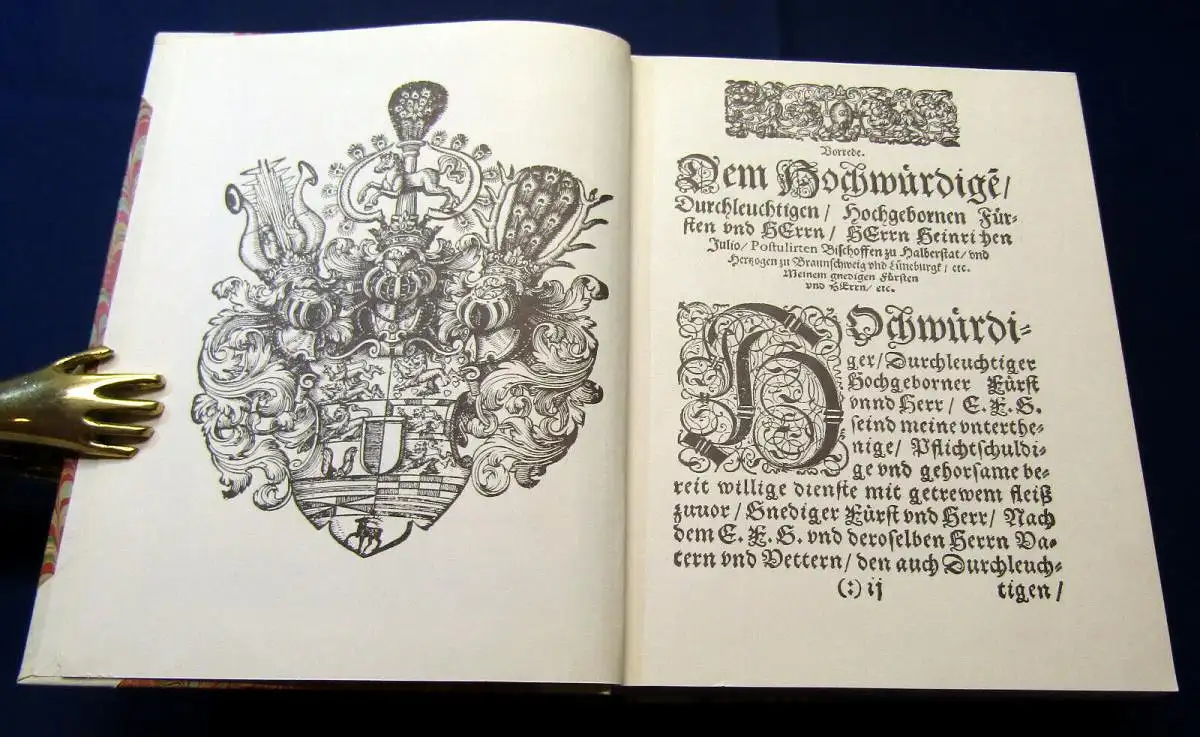 Vorrede.
Dem Hochwürdigē/
Durchleuchtigen/ Hochgebornen Für-
sten vnd HErrn/ HErrn Heinrichen
Julio/ Postulirten Bischoffen zu Halberstat/ vnd
Hertzogen zu Braunschweig vnd Lüneburgk/ etc.
Meinem gnedigen Fürsten
vnd HErrn/ etc.
HOchwürdi-
ger/ Durchleuchtiger
Hochgeborner Fürst
vnnd Herr/ E. F. G.
seind meine vnterthe-
nige/ Pflichtschuldi-
ge vnd gehorsame be-
reit willige dienste mit getrewem fleiß
zuuor/ Gnediger Fürst vnd Herr/ Nach
dem E. F. G. vnd deroselben Herrn Va-
tern vnd Vettern/ den auch Durchleuch-
(:) ij tigen/